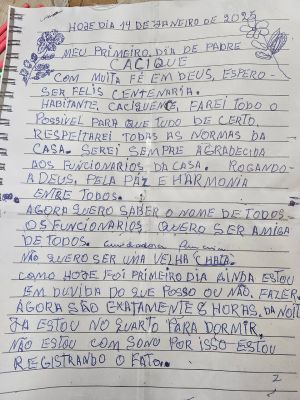 HOJE DIA 14 DE JANEIRO DE 2025
MEU PRIMEIRO DIA DE PADRE
CACIQUE
COM MUITA FÉ EM DEUS, ESPERO-
SER FELIS CENTENARIA.
HABITANTE, CACIQUENCE, FAREI TODO O
POSSÍVEL PARA QUE TUDO DE CERTO,
RESPEITAREI TODAS AS NORMAS DA
CASA. SEREI SEMPRE AGRADECIDA
AOS FUNCIONARIOS DA CASA. ROGANDO-
A DEUS, PELA PAZ E HARMONIA
ENTRE TODOS.
AGORA QUERO SABER O NOME DE TODOS
OS FUNCIONARIOS QUERO SER AMIGA
DE TODOS.
NÃO QUERO SER UMA VELHA CHATA.
COMO HOJE FOI PRIMEIRO DIA AINDA ESTOU
EM DUVIDA DO QUE POSSO OU NÃO, FAZER.
AGORA SÃO EXATAMENTE 8 HORAS, DA NOIT
JA ESTOU NO QUARTO PARA DORMIR,
NÃO ESTOU COM SONO POR ISSO ESTOU
REGISTRANDO O FATO.
2